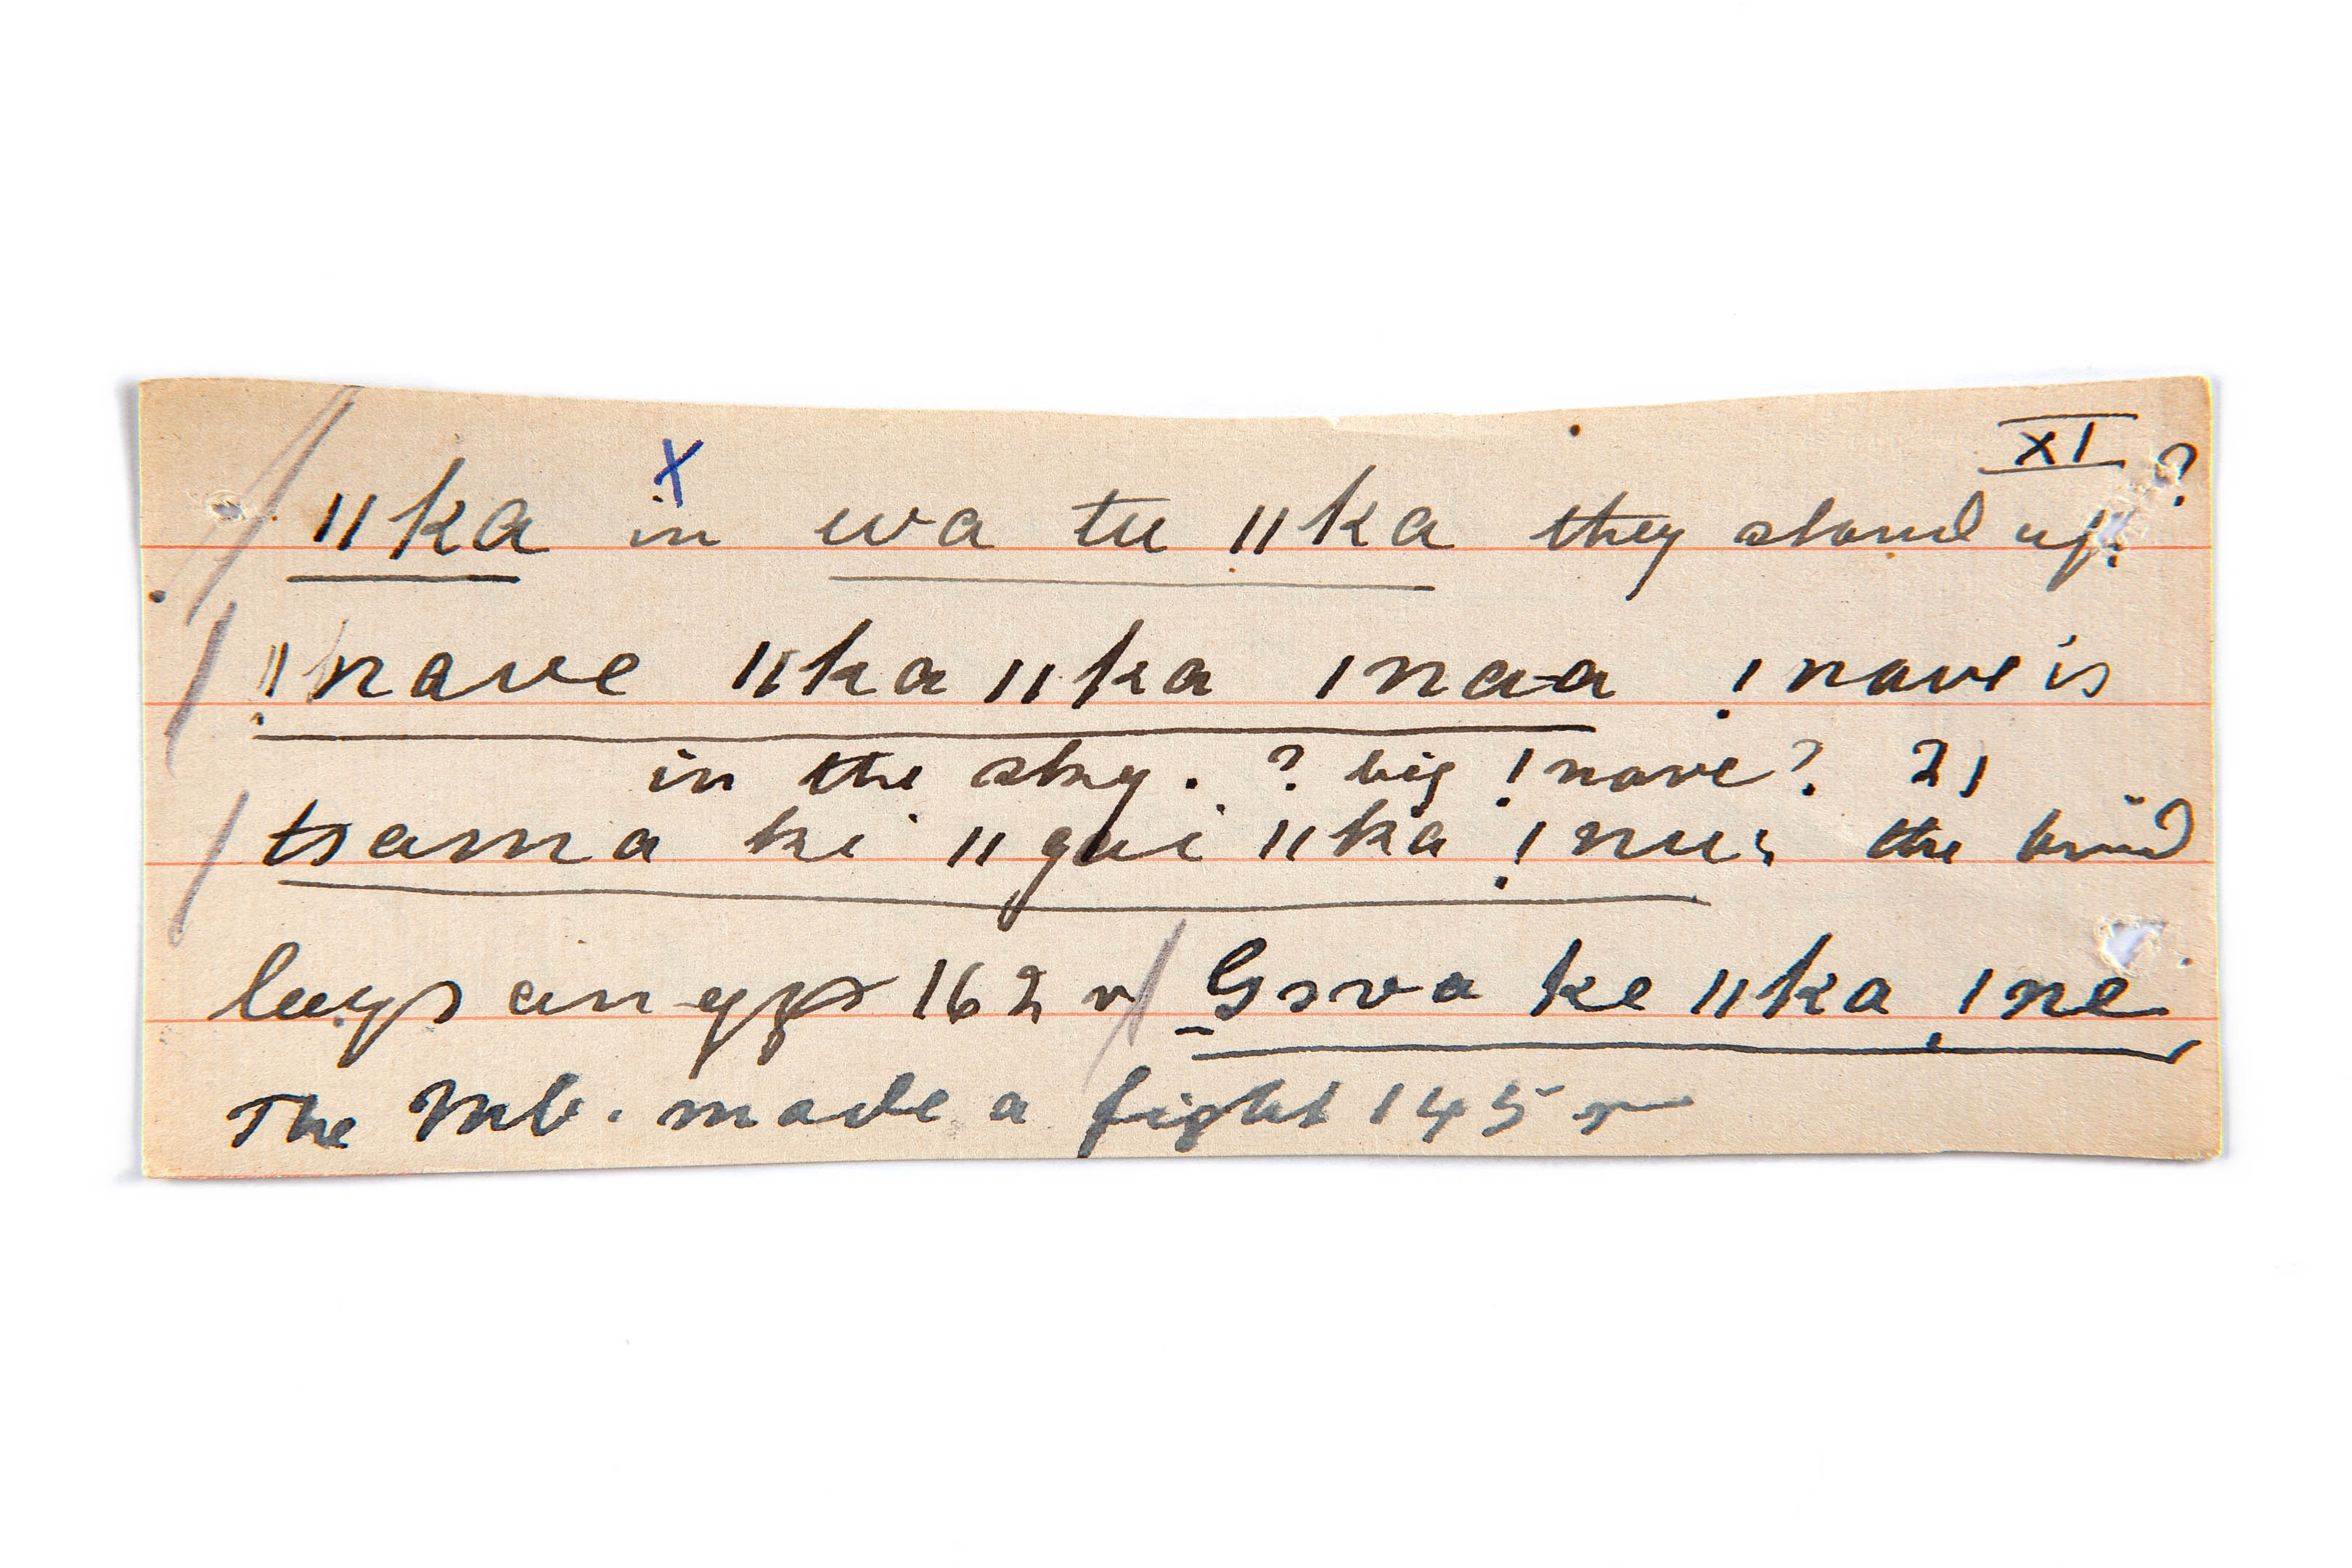 XI
ǁka in wa tu ǁka they stand up?
!nave ǁka ǁka ǀnaa !nave is
in the sky. ? big !nave? 21
tsama ki ǁgui ǁka !nu: the bird
lays an egg 162 v Gova ke ǁka !ne
The Mb. made a fight 145 r